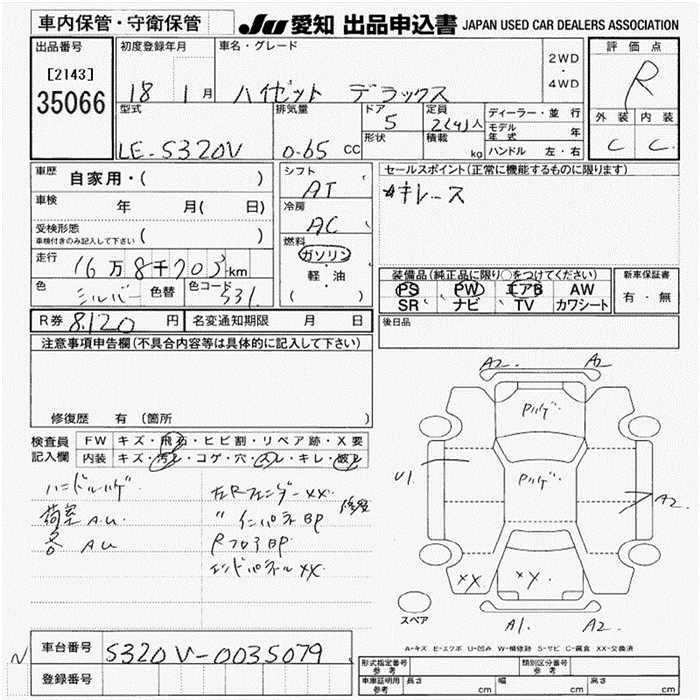 車内保管・守衛保管
JU 愛知 出品申込書 JAPAN USED CAR DEALERS ASSOCIATION
出品番号
[2143]
35066
初度登録年月
18 1月
車名・グレード
ハイゼット デラックス
2WD
・
4WD
評価点
R
外装 内装
C C
型式
LE-S320V
排気量
0.65 CC
ドア
5
形状
定員
2(4)人
積載
kg
ディーラー・並行
モデル年式 年
ハンドル 左・右
車歴 自家用・( )
車検 年 月( 日)
受検形態
車検付きのみ記入して下さい ( )
走行 16万8千703km
色 シルバー 色替 色コード S31
シフト
AT
冷房
AC
燃料
ガソリン
・
軽・油
( )
セールスポイント(正常に機能するものに限ります)
キレース
装備品(純正品に限り○をつけてください)
PS PW エアB AW
SR ナビ TV カワシート
新車保証書
有・無
R券 8,120 円 名変通知期限 月 日
後日品
注意事項申告欄(不具合内容等は具体的に記入して下さい)
修復歴 有(箇所 )
検査員記入欄
FW キズ・飛石・ヒビ割・リペア跡・X要
内装 キズ・汚レ・コゲ・穴・スレ・キレ・破レ
ハンドルハゲ
荷室 A.U.
各 AU
左Rフェンダー XX.
〃 インパネ BP 修復
Rフロア BP.
エンドパネル XX.
A2. A2
Pハゲ.
Pハゲ.
U1.
A2.
XX
XY.
A1. A2.
スペア
A-キズ E-エクボ U-凹み W-補修跡 S-サビ C-腐食 XX-交換済
N
車台番号 S320V-0035079
登録番号
形式指定番号 参考
類別区分番号 参考
車庫証明用 参考 長さ cm 幅 cm 高さ cm